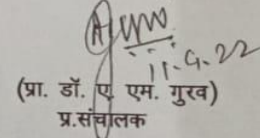 11.9.22
(प्रा. डॉ. ए. एम. गुरव)
प्र.संचालक